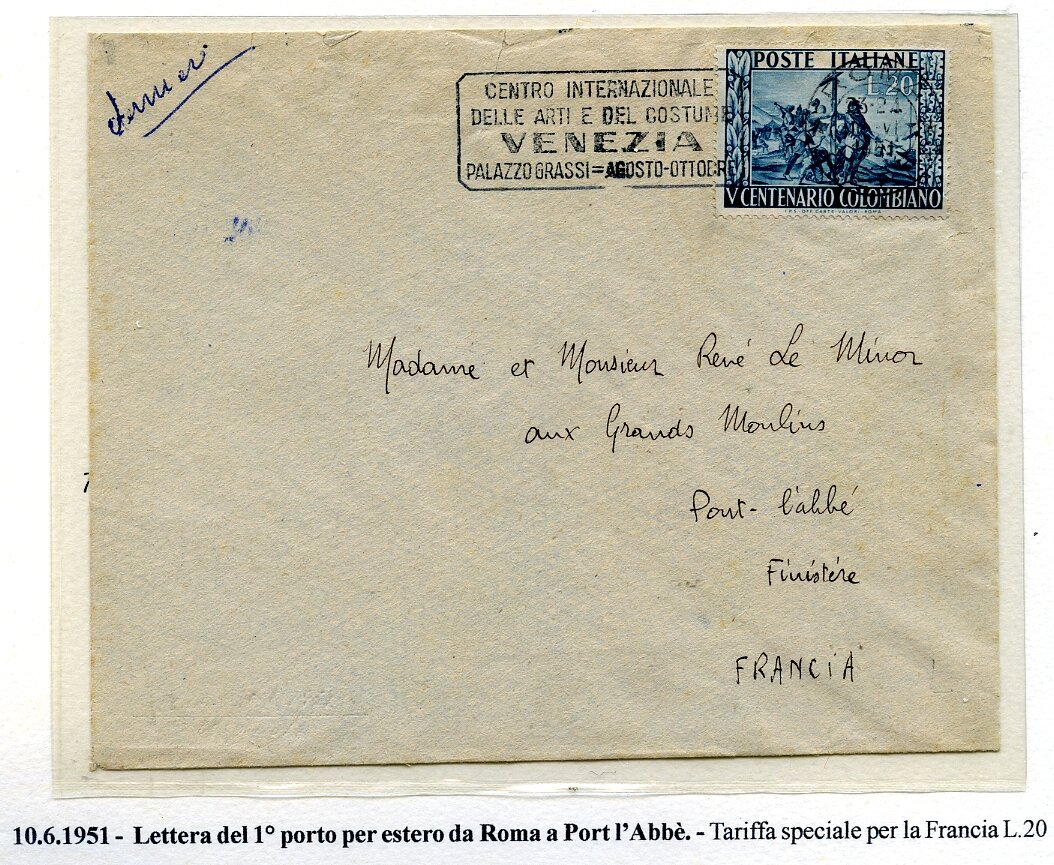 CENTRO INTERNAZIONALE
DELLE ARTI E DEL COSTUME
VENEZIA
PALAZZO GRASSI = AGOSTO-OTTOBRE
POSTE ITALIANE
L.20
V CENTENARIO COLOMBIANO
I.P.S. OFF. CARTE-VALORI-ROMA
Madame et Monsieur René Le Minor
aux Grands Moulins
Pont-l'abbé
Finistére
FRANCiA
10.6.1951 - Lettera del 1° porto per estero da Roma a Port l'Abbè. - Tariffa speciale per la Francia L.20